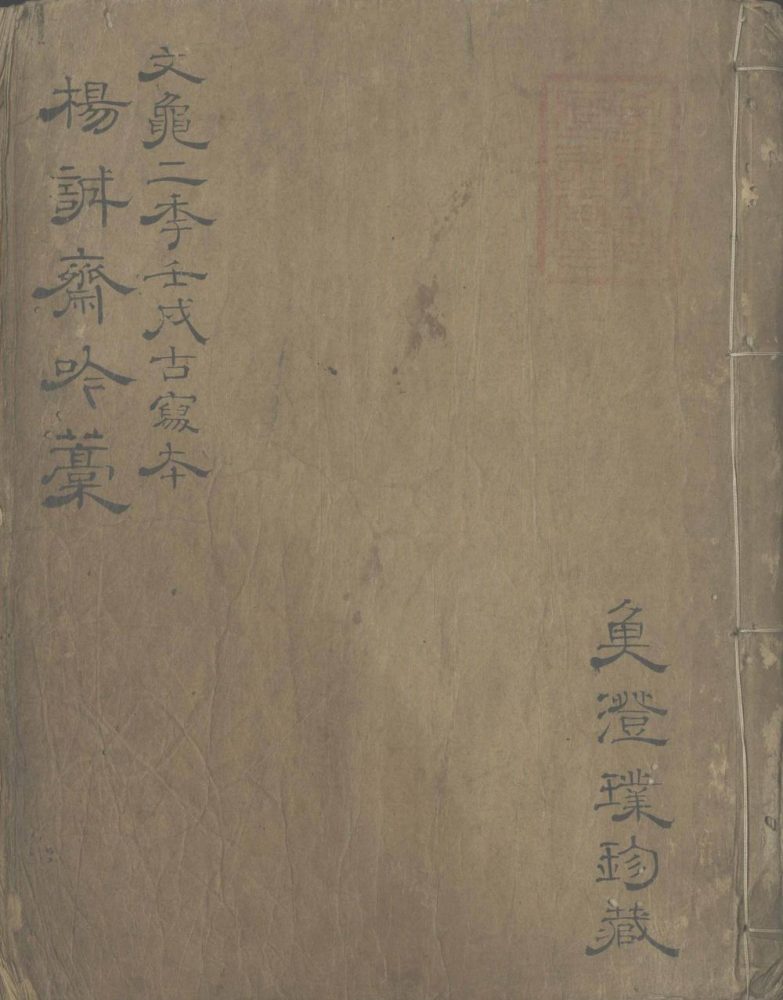 魚澄璞藏
文龜二季壬戌古寫夲
楊誠齋吟藁